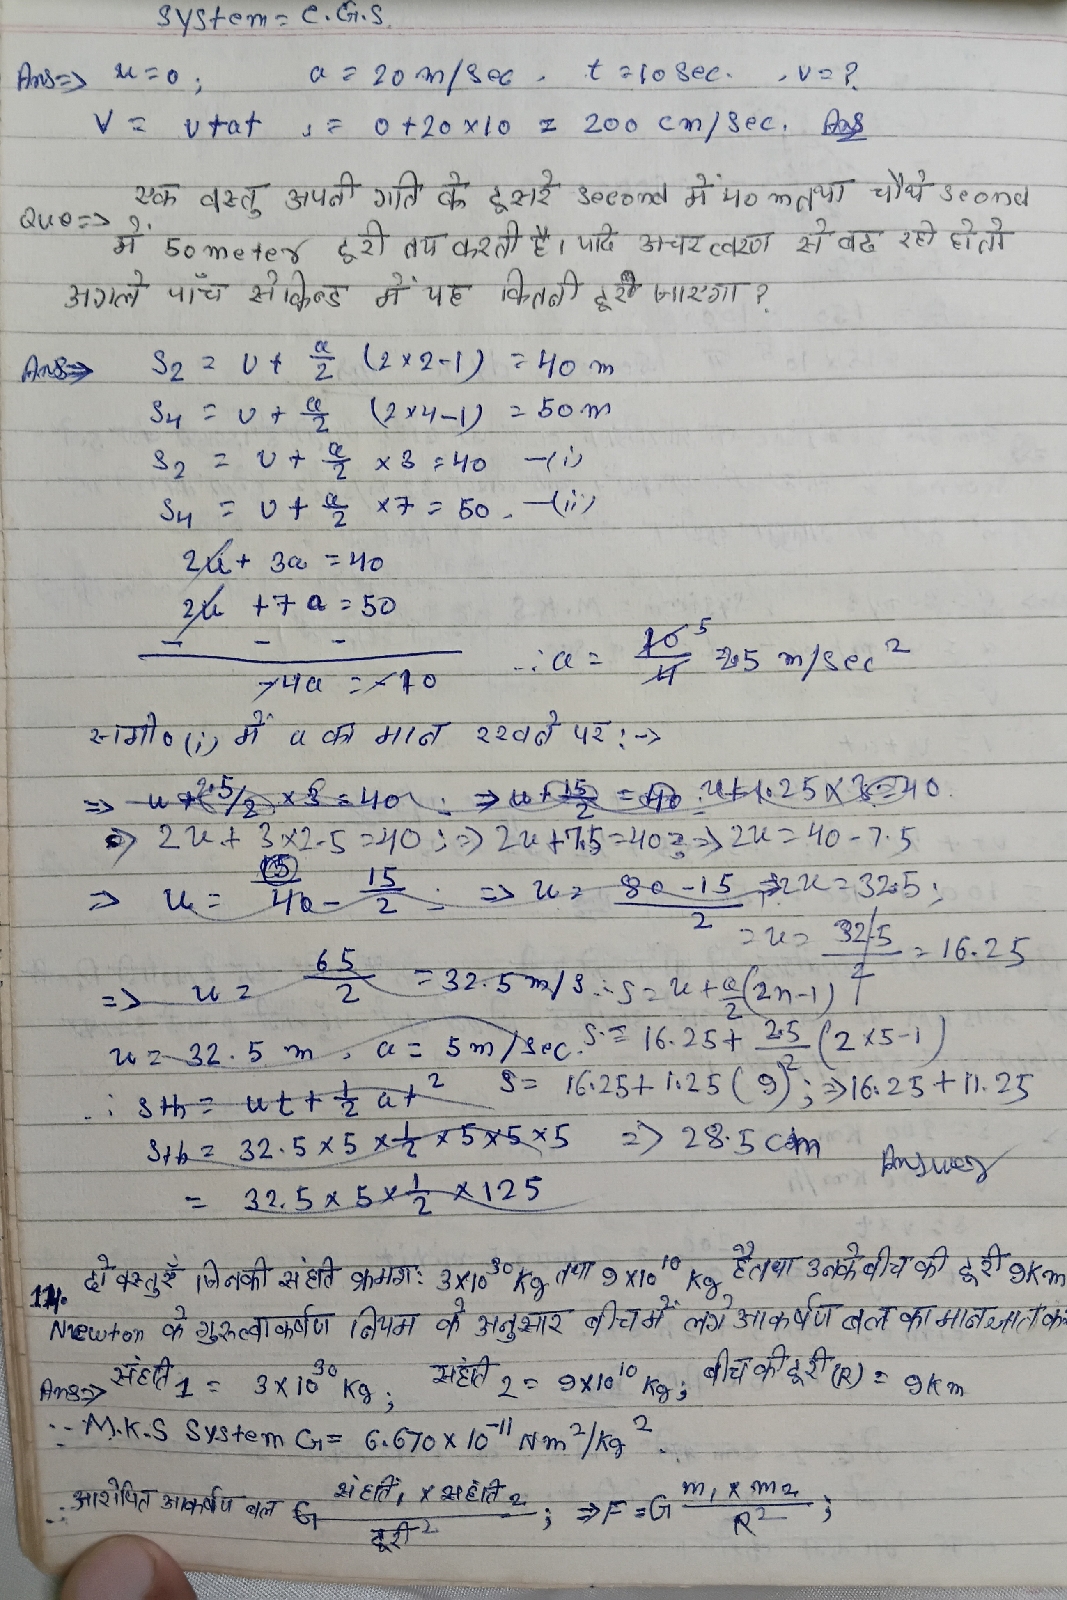 System = C.G.S.
Ans=> u=0; a = 20 m/sec, t = 10 sec. , v=?
V = u+at ; = 0+20×10 = 200 cm/sec. Ans
एक वस्तु अपनी गति के दूसरे second में 40 m तथा चौथे second
Que=> में 50 meter दूरी तय करती है। यदि अचर त्वरण से बढ़ रही हो तो
अगले पाँच सेकेण्ड में यह कितनी दूरी जाएगा ?
Ans=> S₂ = U + a/2 (2×2-1) = 40 m
S₄ = U + a/2 (2×4-1) = 50 m
S₂ = U + a/2 ×3 = 40 —(i)
S₄ = U + a/2 ×7 = 50. —(ii)
2u + 3a = 40
2u + 7a = 50
- - -
-4a = -10 ∴ a = 10/4 5 = 2.5 m/sec²
समी० (i) में a का मान रखने पर :->
=> u + 2.5/2 × 3 = 40 ; => u + 15/2 = 40 ; u+1.25×3=40.
=> 2u + 3×2.5 = 40 ; => 2u+7.5=40 ; => 2u = 40-7.5
=> u = 40 - 15/2 ; => u = 80-15/2 => 2u = 32.5 ;
= u = 32.5/2 = 16.25
=> u = 65/2 = 32.5 m/s ∴ S = u + a/2 (2n-1)
u = 32.5 m , a = 5 m/sec. S = 16.25 + 2.5/2 (2×5-1)
∴ Sth = ut + 1/2 at² S = 16.25 + 1.25 (9) ; => 16.25 + 11.25
Sth = 32.5 × 5 × 1/2 × 5×5×5 => 28.5 m Answer
= 32.5 × 5 × 1/2 × 125
14. दो वस्तुएँ जिनकी संहति क्रमशः 3×10³⁰ Kg तथा 9×10¹⁰ Kg है तथा उनके बीच की दूरी 9Km
Newton के गुरुत्वाकर्षण नियम के अनुसार बीच में लगे आकर्षण बल का मान ज्ञात क
Ans=> संहति 1 = 3×10³⁰ Kg ; संहति 2 = 9×10¹⁰ Kg ; बीच की दूरी (R) = 9Km
∴ M.K.S System G = 6.670×10⁻¹¹ Nm²/Kg².
∴ आरोपित आकर्षण बल G संहति₁ × संहति₂/दूरी² ; => F = G m₁ × m₂/R² ;